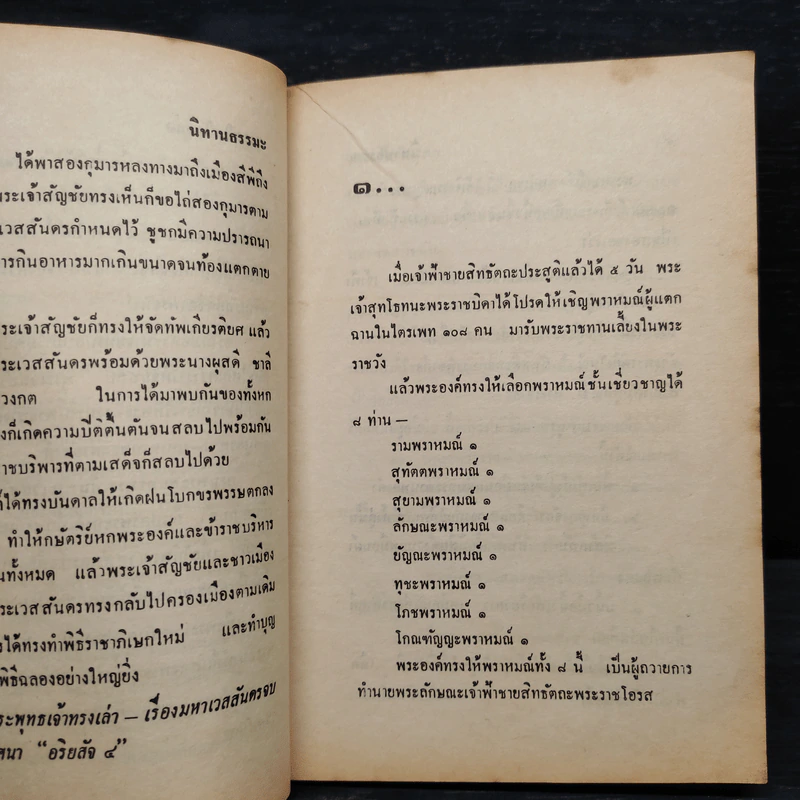 นิทานธรรมะ
ได้พาสองกุมารหลงทางมาถึงเมืองสีพีถึง
พระเจ้าสัญชัยทรงเห็นก็ขอไถ่สองกุมารตาม
เวสสันดรกำหนดไว้ ชูชกมีความปรารถนา
การกินอาหารมากเกินขนาดจนท้องแตกตาย
ระเจ้าสัญชัยก็ทรงให้จัดทัพเกียรติยศ แล้ว
ระเวสสันดรพร้อมด้วยพระนางผุสดี ชาลี
วงกต ในการได้มาพบกันของทั้งหก
งก็เกิดความปีติตื้นตันจนสลบไปพร้อมกัน
าชบริพารที่ตามเสด็จก็สลบไปด้วย
ก็ได้ทรงบันดาลให้เกิดฝนโบกขรพรรษตกลง
ทำให้กษัตริย์หกพระองค์และข้าราชบริหาร
นทั้งหมด แล้วพระเจ้าสัญชัยและชาวเมือง
ระเวสสันดรทรงกลับไปครองเมืองตามเดิม
งได้ทรงทำพิธีราชาภิเษกใหม่ และทำบุญ
พิธีฉลองอย่างใหญ่ยิ่ง
ระพุทธเจ้าทรงเล่า – เรื่องมหาเวสสันดรจบ
ศนา “อริยสัจ ๔”
๑...
เมื่อเจ้าฟ้าชายสิทธัตถะประสูติแล้วได้ ๕ วัน พระ
เจ้าสุทโธทนะพระราชบิดาได้โปรดให้เชิญพราหมณ์ผู้แตก
ฉานในไตรเพท ๑๐๘ คน มารับพระราชทานเลี้ยงในพระ
ราชวัง
แล้วพระองค์ทรงให้เลือกพราหมณ์ชั้นเชี่ยวชาญได้
๘ ท่าน –
รามพราหมณ์ ๑
สุทัตตพราหมณ์ ๑
สุยามพราหมณ์ ๑
ลักษณะพราหมณ์ ๑
ยัญณะพราหมณ์ ๑
ทุชะพราหมณ์ ๑
โภชพราหมณ์ ๑
โกณฑัญญะพราหมณ์ ๑
พระองค์ทรงให้พราหมณ์ทั้ง ๘ นี้ เป็นผู้ถวายการ
ทำนายพระลักษณะเจ้าฟ้าชายสิทธัตถะพระราชโอรส